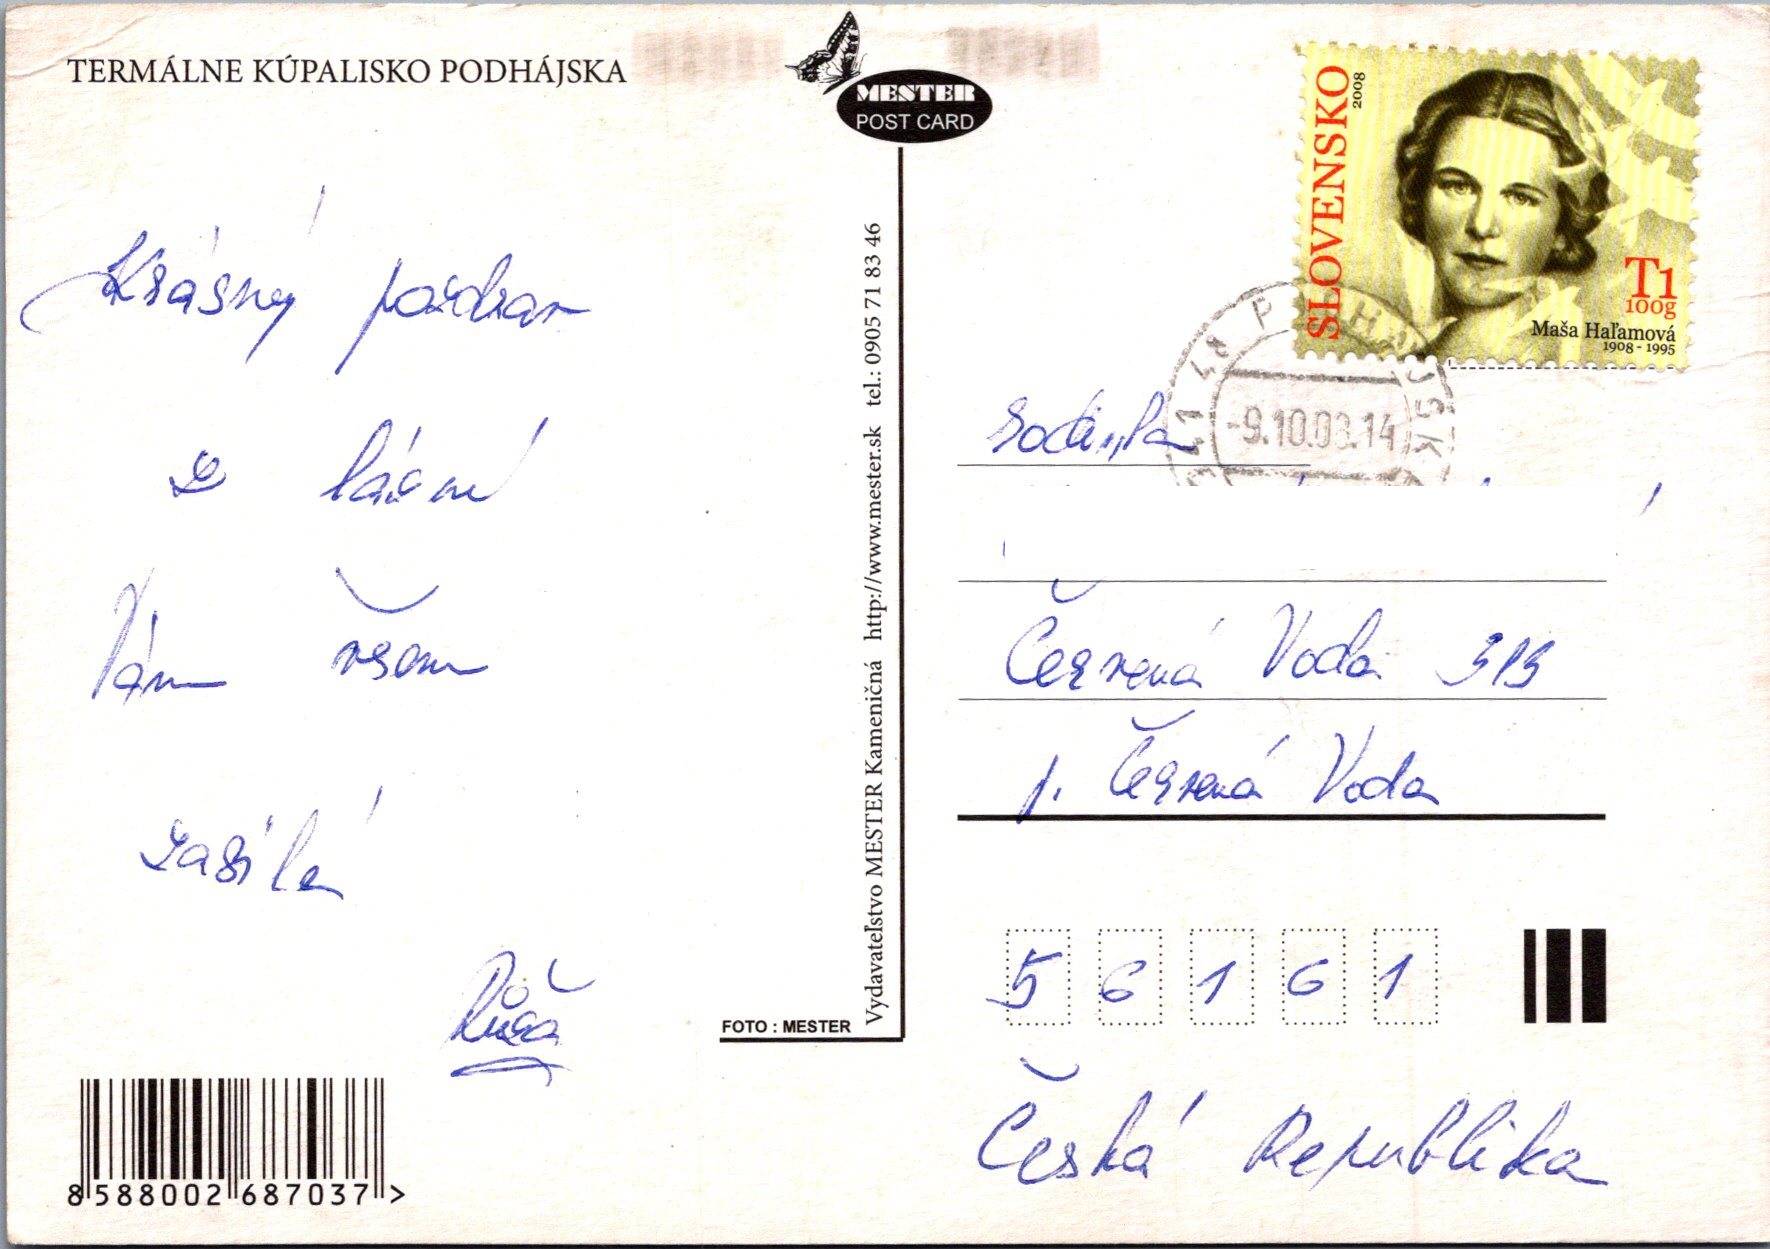 TERMÁLNE KÚPALISKO PODHÁJSKA
MESTER
POST CARD
SLOVENSKO
2008
T1
100g
Maša Haľamová
1908 - 1995
-9.10.08.14
Krásný pozdrav
z lázní
Vám všem
zasílá
Růža
Vydavateľstvo MESTER Kameničná http://www.mester.sk tel.: 0905 71 83 46
FOTO : MESTER
8 588002 687037 >
Rodinka
Červená Voda
p. Červená Voda
5 6 1 6 1
Česká Republika